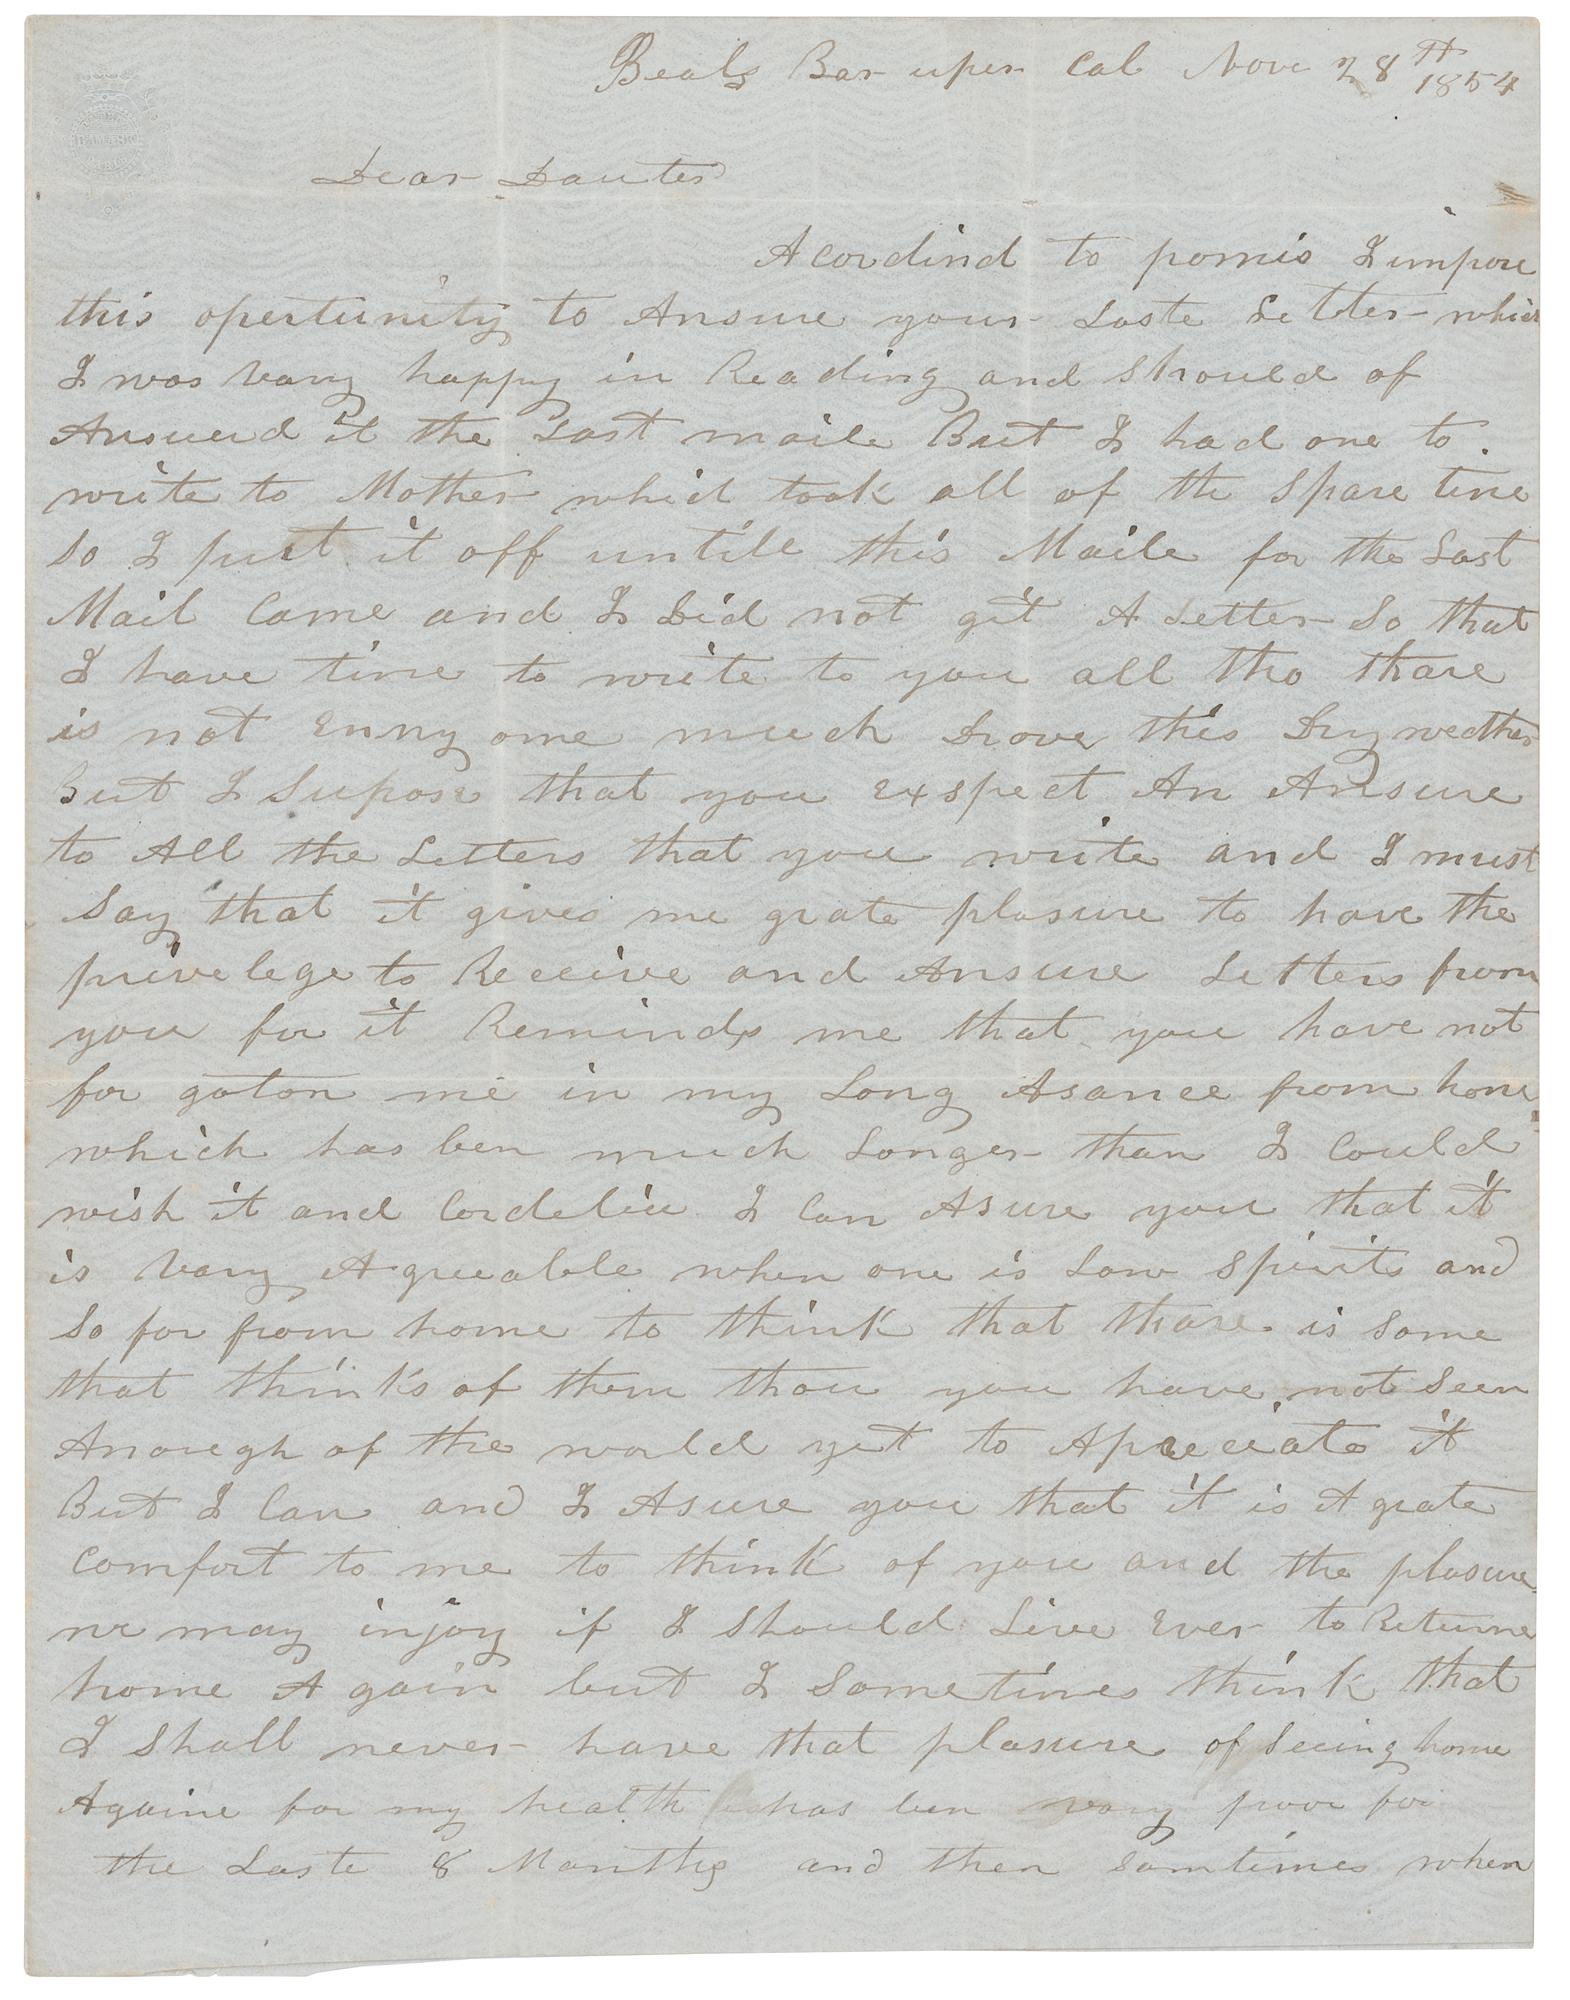 Beals Bar uper Cal Nove 28th 1854
Dear Dauter
Acordind to pomis I impore
this opertunity to Ansure your Laste Letter which
I was Vary happy in Reading and Should of
Answerd it the Last maile But I had one to
write to Mother which took all of the Spare time
So I put it off untile this Maile for the Last
Mail Came and I Did not git A Letter So that
I have time to write to you all tho thare
is not Enny one much Drove this Dry wether
But I Supose that you Exspect An Ansure
to All the Letters that you write and I must
Say that it gives me grate plasure to have the
privelege to Receive and Ansure Letters from
you for it Reminds me that you have not
for goton me in my Long Asance from home
which has ben much Longer than I Could
wish it and Cordelia I Can Asure you that it
is Vary Agreeable when one is Low Spirits and
So far from home to think that thare is Some
that thinks of them thou you have not Seen
Anough of the world yet to Apreciate it
But I Can and I Asure you that it is A grate
Comfort to me to think of you and the plasure
we may injoy if I Should Live Ever to Returne
home Again but I Sometimes think that
I Shall never have that plasure of Seeing home
Againe for my health has ben vary poor for
the Laste 8 Months and then Somtimes when